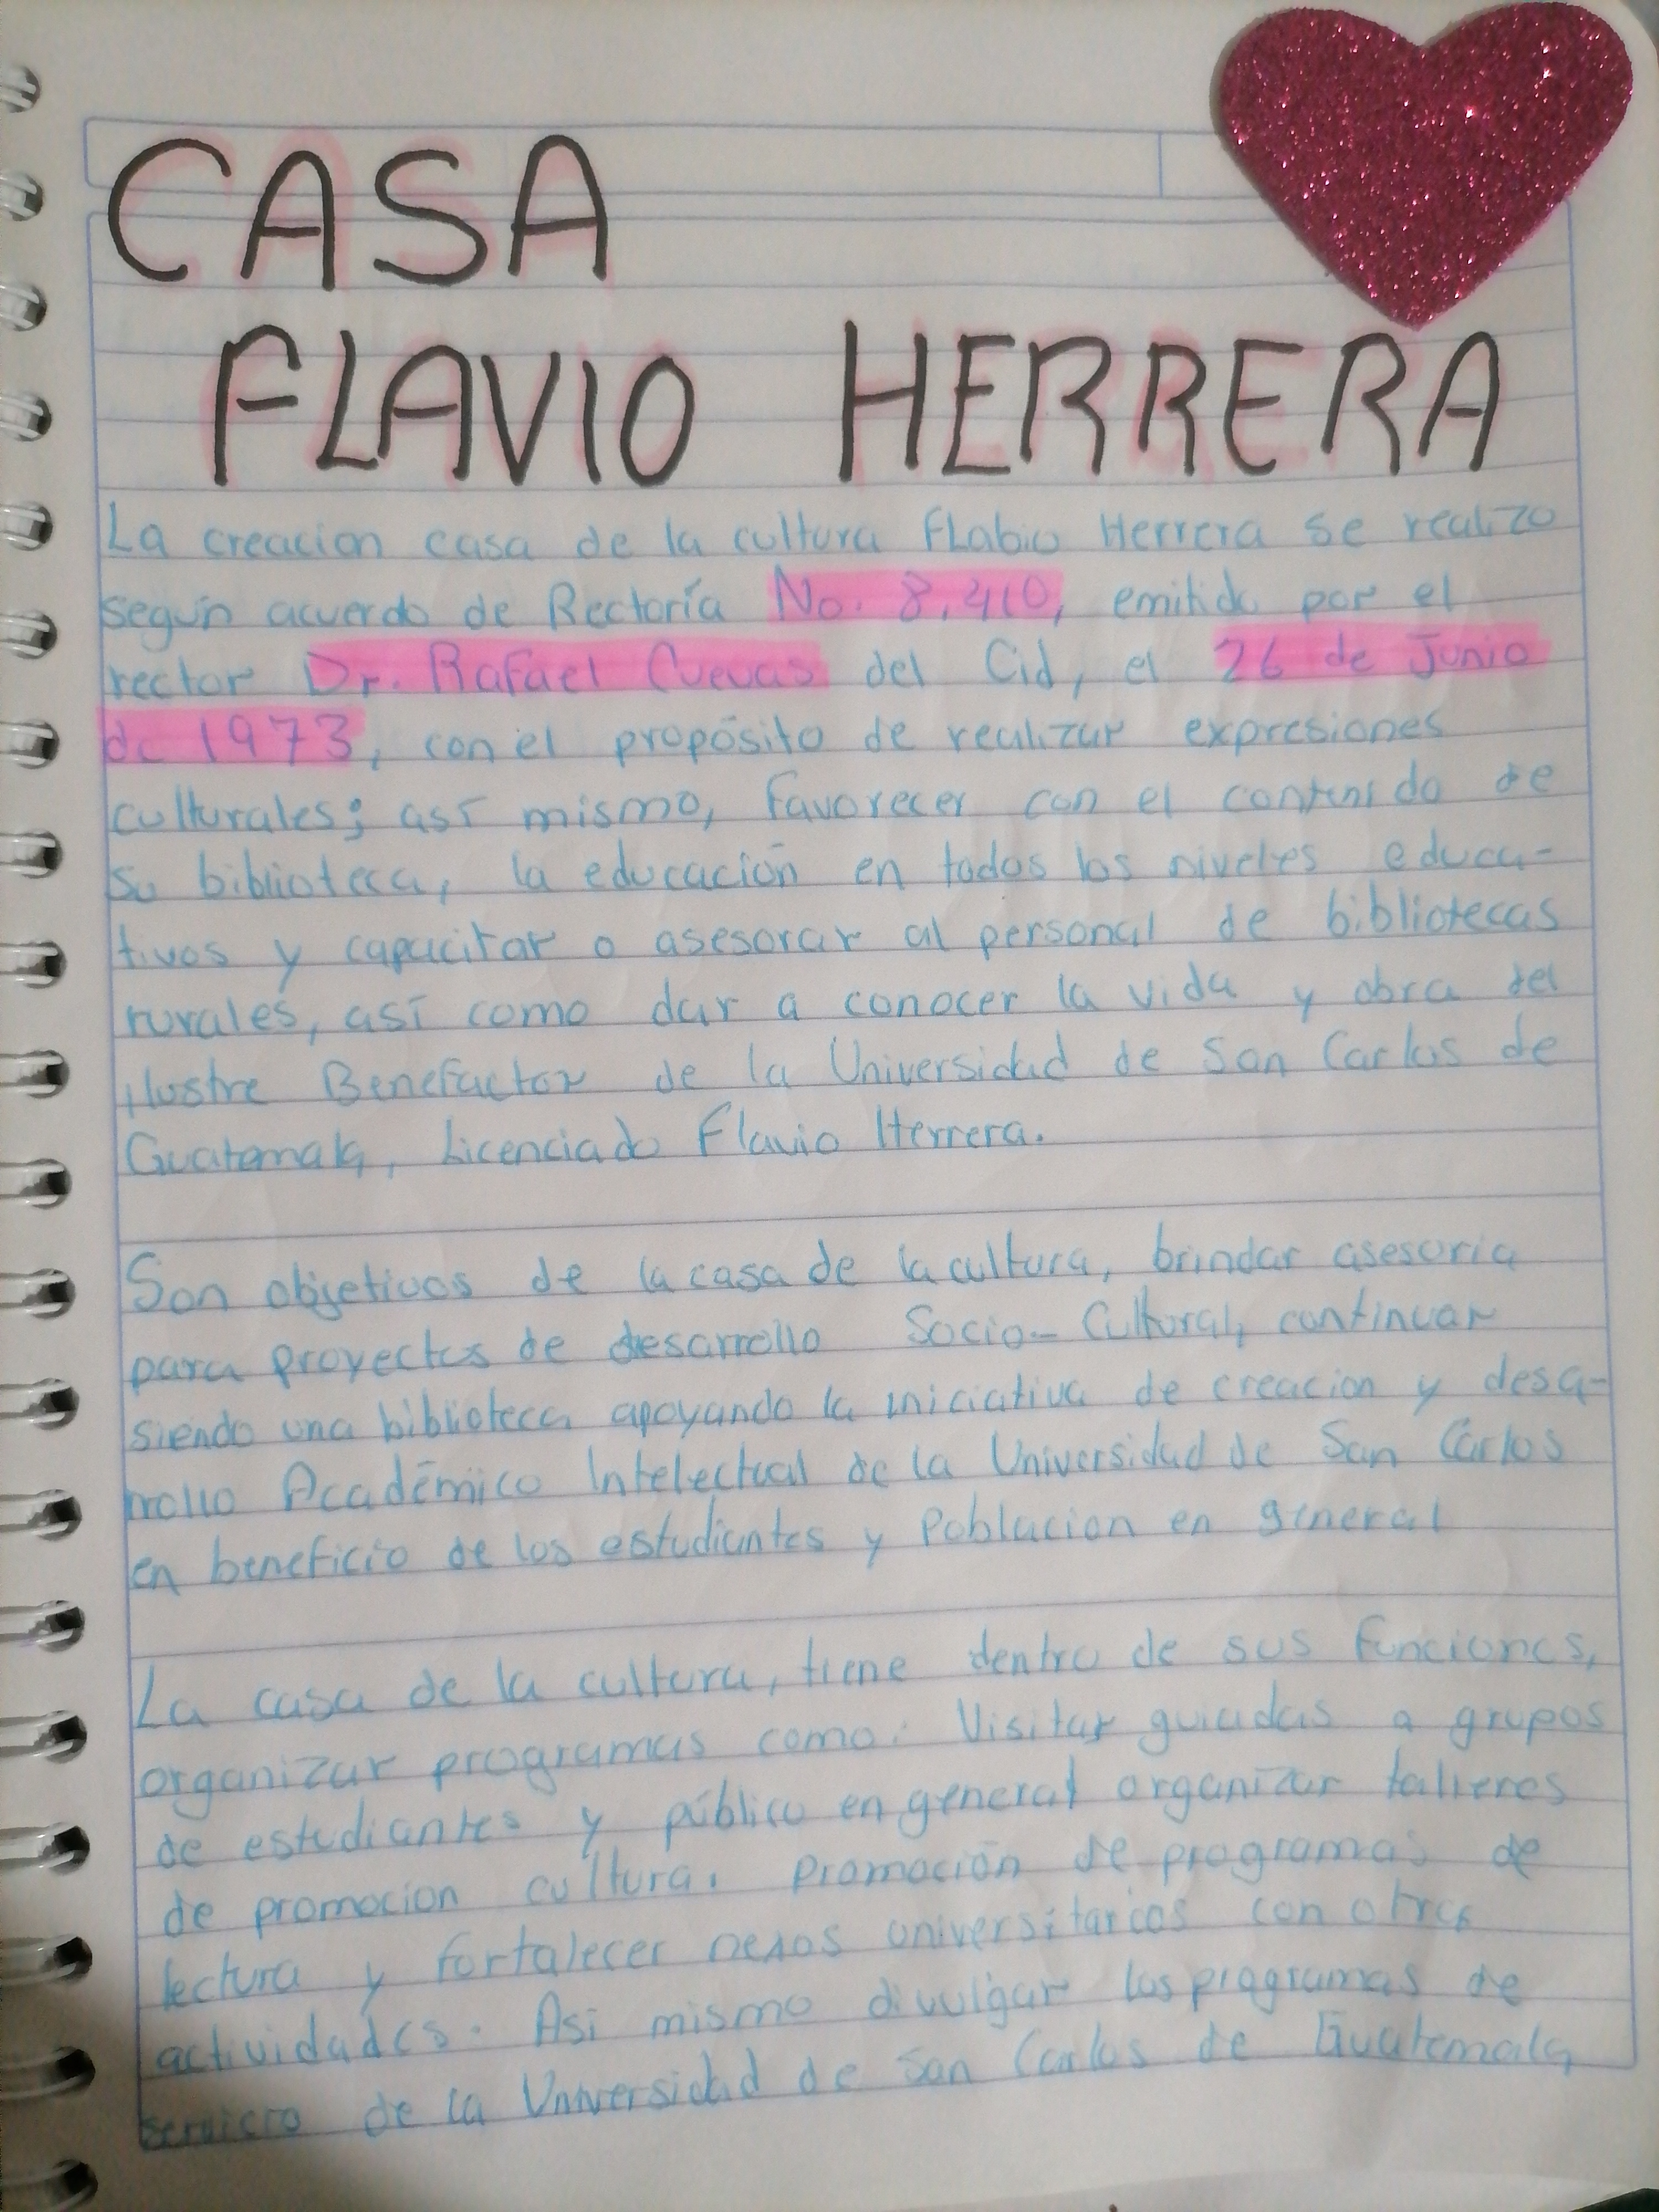 CASA
FLAVIO HERRERA
La creacion casa de la cultura FLabio Herrera se realizo
según acuerdo de Rectoría No. 8,410, emitido por el
rector Dr. Rafael Cuevas del Cid, el 26 de Junio
de 1973, con el propósito de realizar expresiones
culturales; así mismo, Favorecer con el contenido de
su biblioteca, la educación en todos los niveles educa-
tivos y capacitar o asesorar al personal de bibliotecas
rurales, así como dar a conocer la vida y obra del
ilustre Benefactor de la Universidad de San Carlos de
Guatemala, Licenciado Flavio Herrera.
Son objetivos de la casa de la cultura, brindar asesoria
para proyectos de desarrollo Socio-Cultural, continuar
siendo una biblioteca apoyando la iniciativa de creacion y desa-
rrollo Académico Intelectual de la Universidad de San Carlos
en beneficio de los estudiantes y Poblacion en general
La casa de la cultura, tiene dentro de sus funciones,
organizar programas como: Visitar guiadas a grupos
de estudiantes y público en general organizar talleres
de promocion cultura. Promoción de programas de
lectura y fortalecer nexos universitarios con otras
actividades. Asi mismo divulgar los programas de
servicio de la Universidad de San Carlos de Guatemala